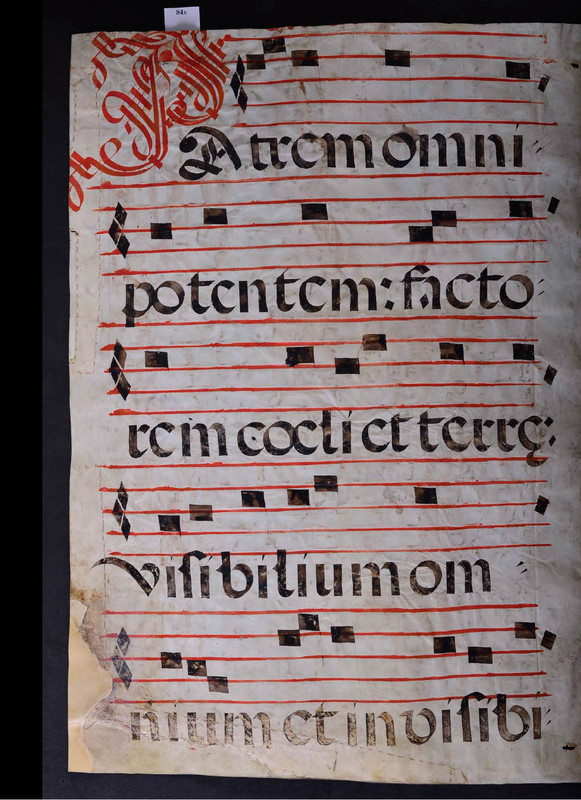 84v
Patrem omni
potentem: facto
rem coeli et terrę:
visibilium om
nium et invisibi